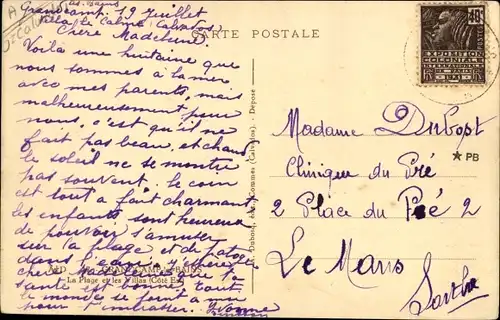 Grandcamp. 19 Juillet
Villa le Calme Calvados
Chère Madeleine.
Voilà une huitaine que
nous sommes à la mer
avec mes parents, mais
malheureusement pour
nous, c'est qu'il ne
fait pas beau, et chaud
le soleil ne se montre
pas souvent. le coin
est tout a fait charmant
les enfants sont heureux
de pouvoir s'amuser
sur la plage et de
dans l'eau.
chère Madeleine ta
santé est bonne, tout
le monde se joint a moi
pour t'embrasser. Yvonne
GRANDCAMP-les-BAINS
La Plage et les Villas (Côté Est)
CARTE POSTALE
Dubosq, édit., Commes (Calvados). - Déposé
40c
EXPOSITION
COLONIALE
INTERNATIONALE
PARIS 1931
Madame Dubost
★ PB
Clinique du Pré
2 Place du Pré 2
Le Mans
Sarthe